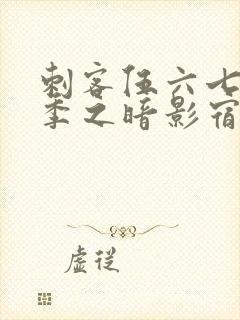 刺客伍六七
季之暗影宿
虚從